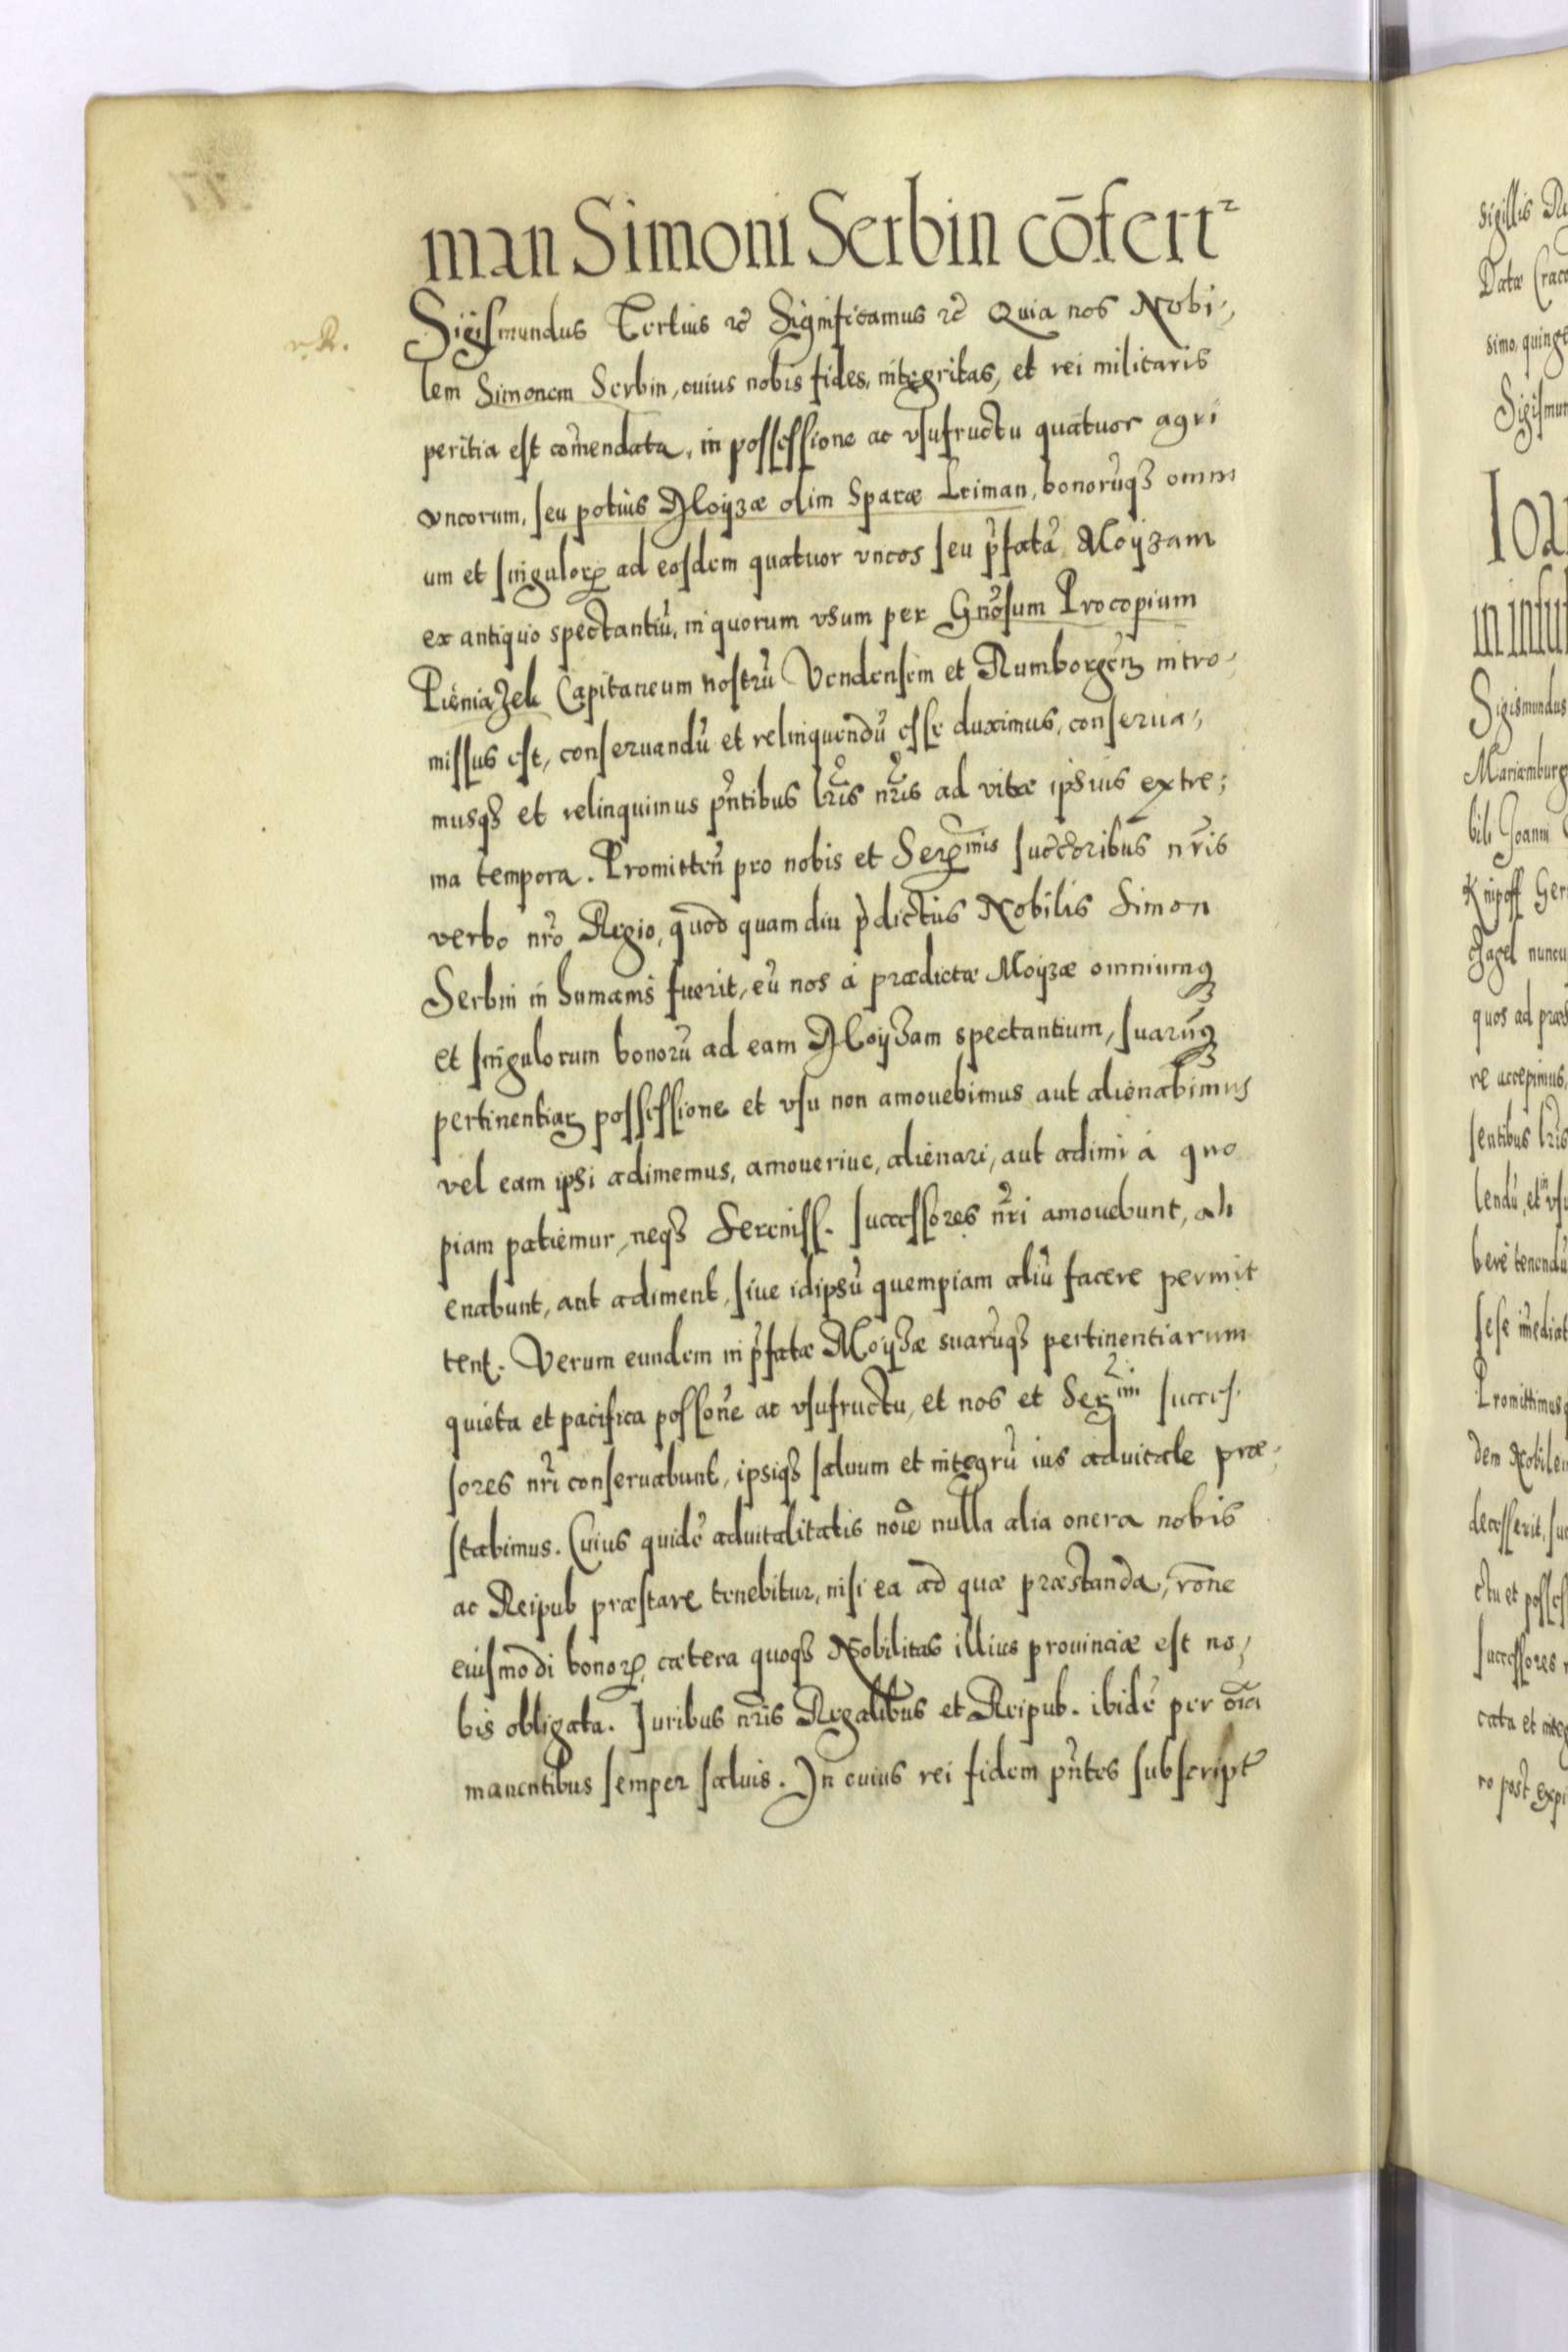 man Simoni Serbin cōfert²
Sigismundus Tertius &c Significamus &c Quia nos Nobi-
lem Simonem Serbin, cuius nobis fides, integritas, et rei militaris
peritia est com̃endata, in possessione ac vsufructu quatuor agri
vncorum, seu potius Aloyzæ olim Spacæ Leiman, bonorũqз omni
um et singuloꝝ ad eosdem quatuor vncos seu p̃fatã Aloyzam
ex antiquo spectantiũ, in quorum vsum per Gñosum Procopium
Pieniazek Capitaneum nostrũ Vendensem et Rumborgeñ intro-
missus est, conseruandũ et relinquendũ esse duximus, conserua-
musqз et relinquimus p̃ntibus l̃ris n̄ris ad vitæ ipsius extre-
ma tempora. Promitteñ pro nobis et Ser̃mis succ̃oribus n̄ris
verbo nr̃o Regio, quod quam diu p̃dictus Nobilis Simon
Serbin in humanis fuerit, eũ nos à prædictæ Aloyzæ omniumqз
et singulorum bonorũ ad eam Aloyzam spectantium, suarũqз
pertinentiaꝝ possessione et vsu non amouebimus aut alienabimus
vel eam ipsi adimemus, amouerive, alienari, aut adimi à quo
piam patiemur, neqз Sereniss. successores n̄ri amouebunt, ali
enabunt, aut adiment, siue idipsũ quempiam aliũ facere permit
tent. Verum eundem in p̃fatæ Aloyzæ suarũqз pertinentiarum
quieta et pacifica poss̃one ac vsufructu, et nos et Ser̃mi succes-
sores nr̃i conseruabunt, ipsiqз saluum et integrũ ius aduitale præ-
stabimus. Cuius quidẽ aduitalitatis nõie nulla alia onera nobis
ac Reipub præstare tenebitur, nisi ea ad quæ præstanda, rõne
eiusmodi bonoꝝ, cætera quoqз Nobilitas illius prouinciæ est no-
bis obligata. Iuribus nr̃is Regalibus et Reipub. ibidẽ per oĩa
manentibus semper saluis. In cuius rei fidem p̃ntes subscript
sigillis
Datæ
simo, quinge
Sigismun
Ioa
in insu
Sigismundus
Mariæmburg
bili Joanni
Knipoff Ger
quos ad præ
re accepimus,
sentibus l̃ris
lendũ, et in vsu
bere tenendũ
sese im̃ediat
Promittimusq
dem Nobilem
decesserit, su
ctu et posses
successores
cata et integ
ro post expi